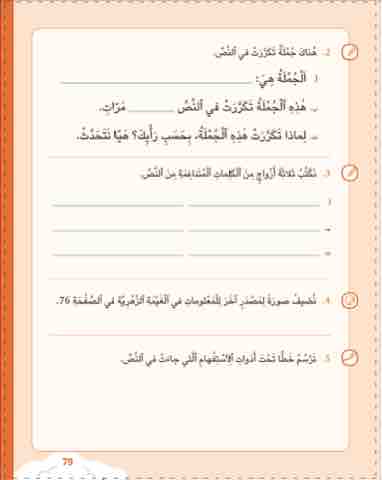 2. هُناكَ جُمْلَةٌ تَكَرَّرَتْ في ٱلنَّصِّ.
أ. ٱلْجُمْلَةُ هِيَ:
ب. هٰذِهِ ٱلْجُمْلَةُ تَكَرَّرَتْ في ٱلنَّصِّ ________ مَرّاتٍ.
ت. لِماذا تَكَرَّرَتْ هٰذِهِ ٱلْجُمْلَةُ، بِحَسَبِ رَأْيِكَ؟ هَيّا نَتَحَدَّثْ.
3. نَكْتُبُ ثَلاثَةَ أَزْواجٍ مِنَ ٱلْكَلِماتِ ٱلْمُتَناغِمَةِ مِنَ ٱلنَّصِّ.
أ.
ب.
ت.
4. نُضيفُ صورَةً لِمَصْدَرٍ آخَرَ لِلْمَعْلوماتِ في ٱلْغَيْمَةِ ٱلزَّهْرِيَّةِ في ٱلصَّفْحَةِ 76.
5. نَرْسُمُ خَطًّا تَحْتَ أَدَواتِ ٱلِٱسْتِفْهامِ ٱلَّتي جاءَتْ في ٱلنَّصِّ.
79